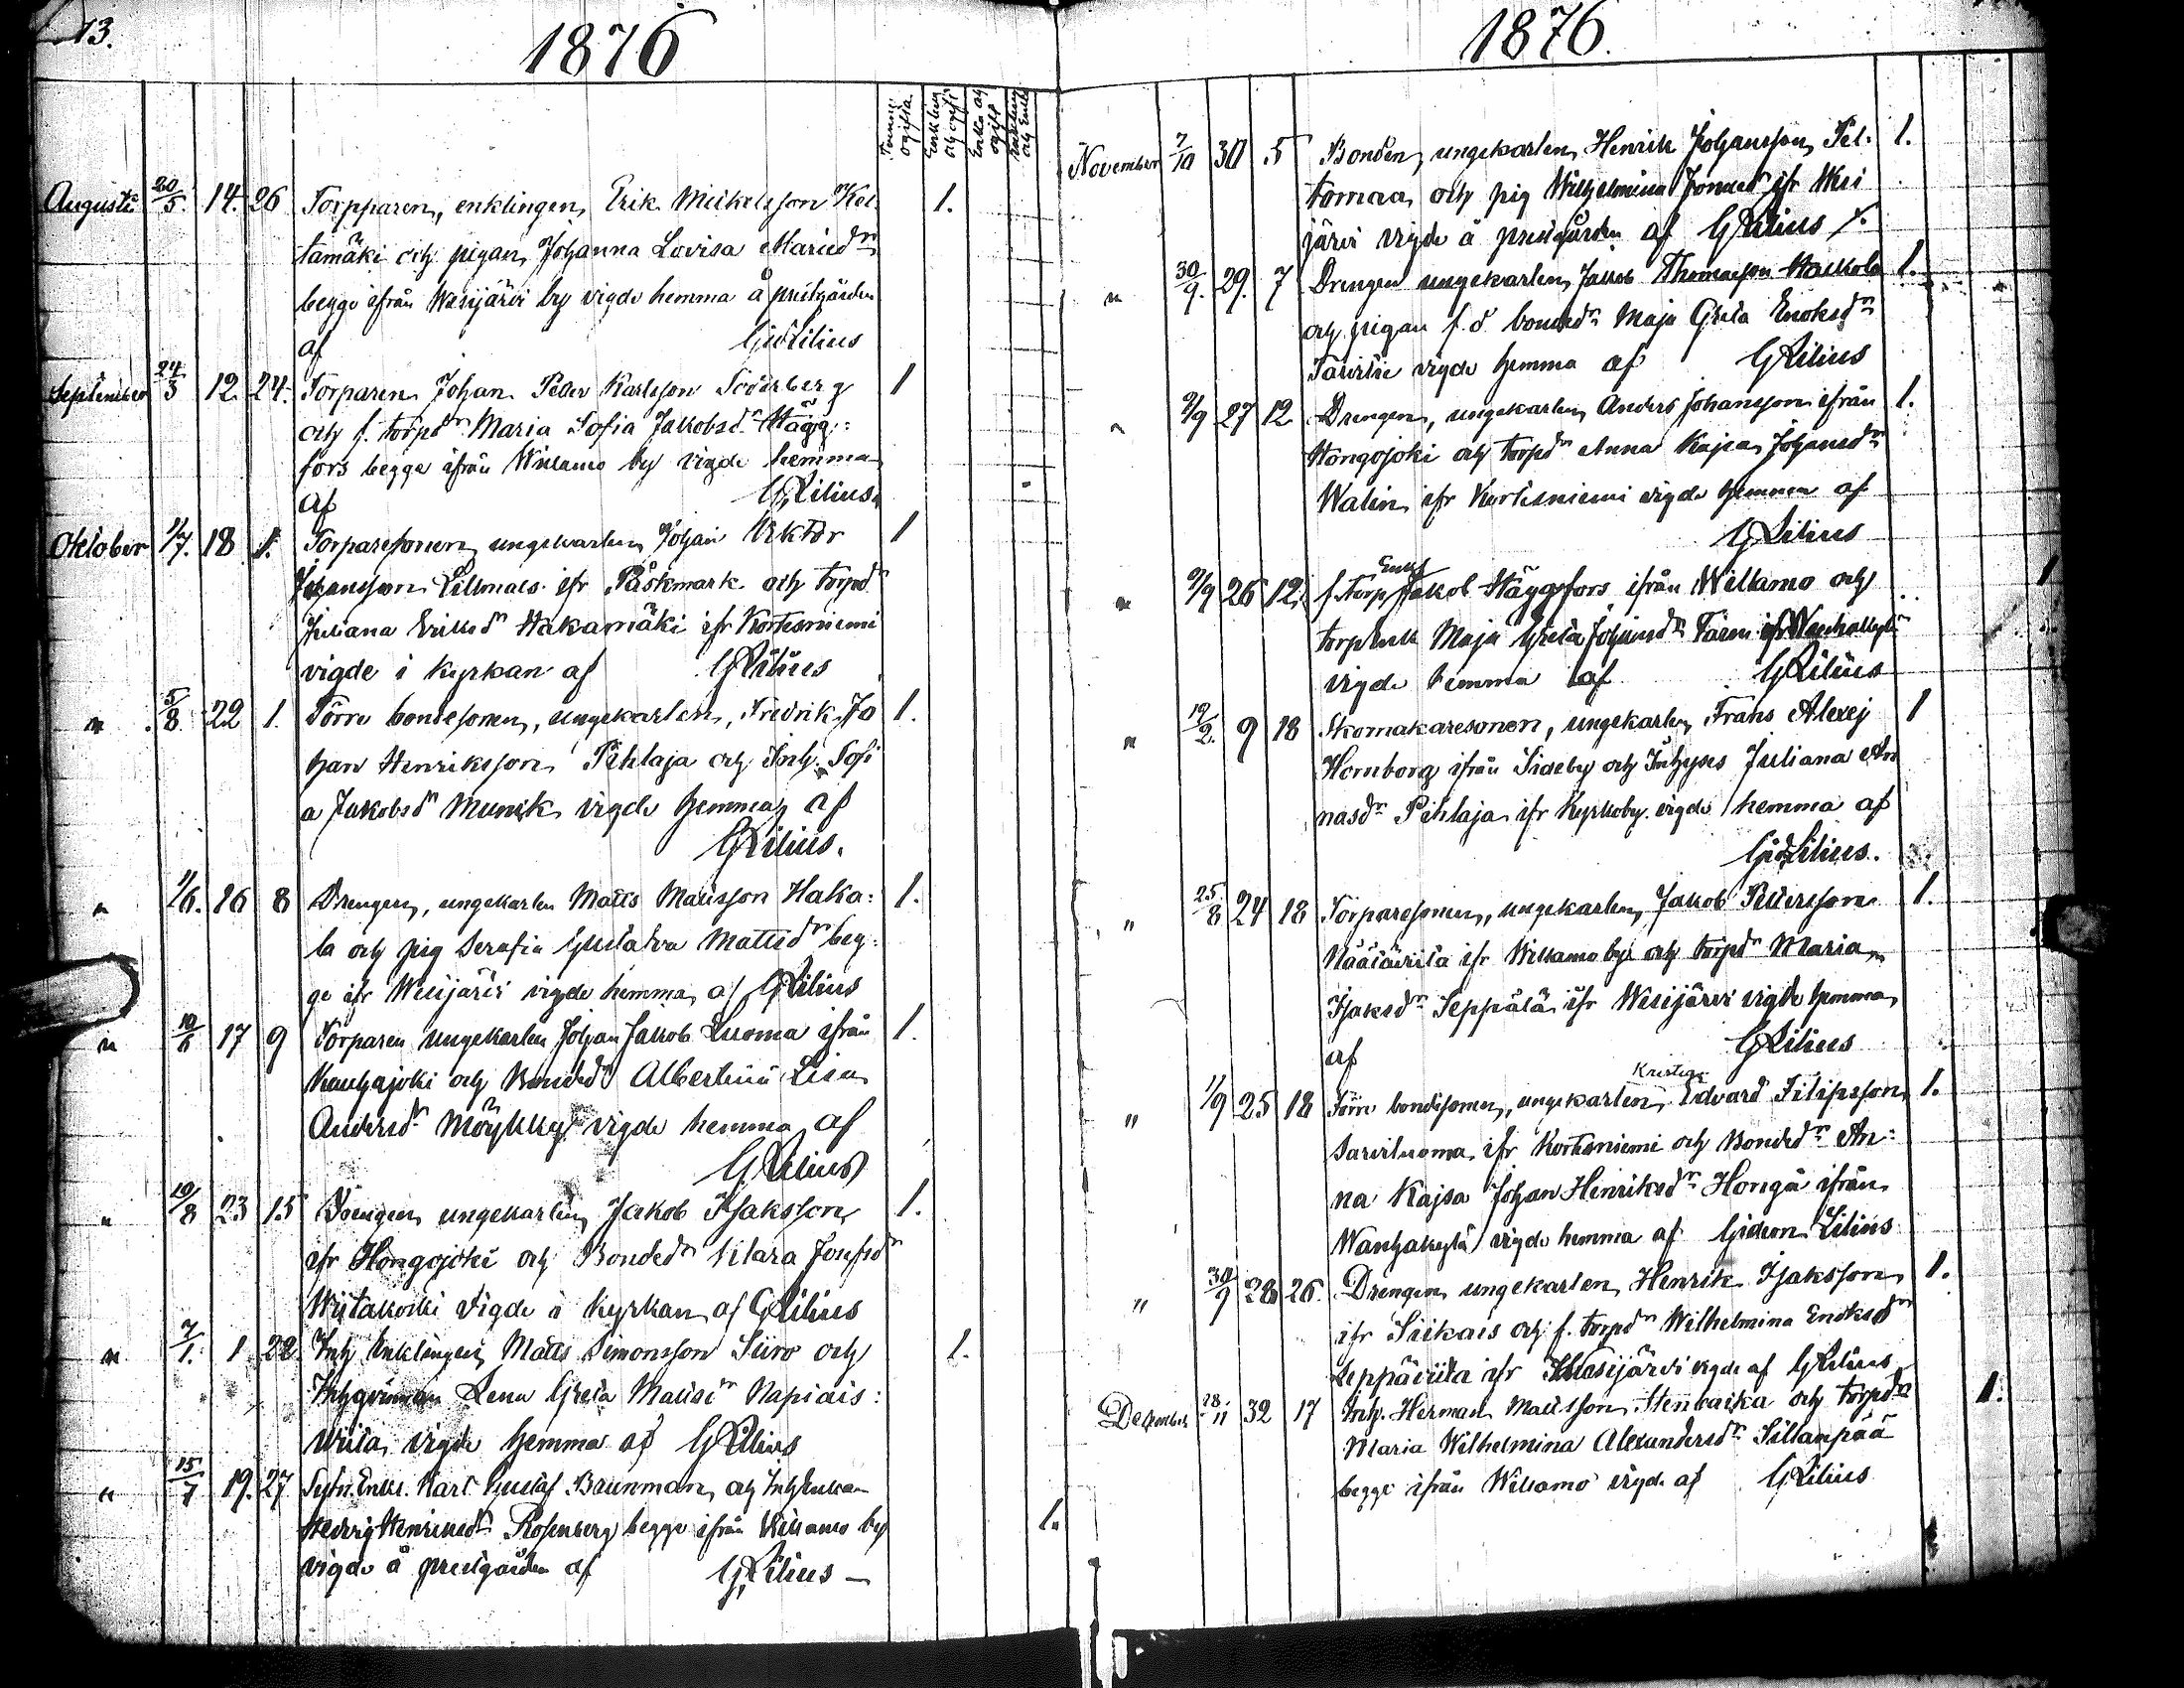 13.
1876
Tvenne ogifta
Enkling och ogift
Enka och ogift
Enkling och Enka
Augusti 20/5. 14. 26 Torpparen, enklingen, Erik Mickelsson Kel-
tamäki och pigan, Johanna Lovisa Mariedr 1.
begge ifrån Wesijärvi by vigde hemma å prestgården
af Gid Lilius
September 24/3 12. 24. Torparen Johan Peter Karlsson Söderberg 1
och f. torpdr Maria Sofia Jakobsdr Hägg:
fors begge ifrån Willamo by vigde hemma
af G Lilius
Oktober 1/7. 18 1. Torparesonen, ungekarlen, Johan Viktor 1
Johansson Lillmals ifr Påskmark och torpdr
Juliana Eriksdr Hakamäki ifr Kortesniemi
vigde i kyrkan af G Lilius
" 5/8 22 1. Förre bondesonen, ungekarlen, Fredrik Jo 1.
han Henriksson Pihlaja och Inh. Sofi
a Jakobsdr Munik vigde hemma af
G Lilius.
" 1/6. 16 8 Drengen, ungekarlen Matts Mattsson Haka: 1.
la och pig Serafia Gustava Mattsdr beg:
ge ifr Wesijärvi vigde hemma af G Lilius
" 10/6 17 9 Torparen ungekarlen Johan Jakob Luoma ifrån 1.
Kauhajoki och Bondedr Albertina Lisa
Andersdr Möykky vigde hemma af
G Lilius
" 19/8 23 15 Drengen, ungekarlen, Jakob Isaksson, 1.
ifr Hongojoki och Bondedr Klara Josefsdr
Wiitakoski vigde i kyrkan af G Lilius
" 7/1. 1 22 Inh Enklingen, Matts Simonsson Siiro och 1.
Inhqvinnan Lena Greta Mattsdr Napiais:
wiita vigde hemma af G Lilius
" 15/7 19. 27 Enkl. Karl Gustaf Brunman, och Inh Enkan
Hedvig Henriksdr Rosenberg begge ifrån Willamo by 1.
vigde å prestgården af G Lilius
1876.
November 7/10 30 5 Bonden, ungekarlen, Henrik Johansson, Pel- 1.
tomaa, och pig Wilhelmina Jonasdr ifr Wesi
järvi vigde å prestgården af G Lilius
" 30/9. 29. 7 Drengen ungekarlen, Jakob Thomasson Haukola 1.
och pigan f.d. bondedr Maja Greta Enoksdr
vigde hemma af G Lilius
" 9/9 27 12 Drengen, ungekarlen, Anders Johansson ifrån 1.
Hongojoki och torpdr Anna Kajsa Johansdr
Walin, ifr Kortesniemi vigde hemma af
G Lilius
" 9/9 26 12. f. torp Enkl Jakob Häggfors ifrån Willamo och 1
torpenk Maja Greta Johansdr ifr Wanhakylä
vigde hemma af G Lilius
" 12/2. 9 18 Skomakaresonen, ungekarlen, Frans Alexej 1
Hornborg ifrån Sideby och Inhyses Juliana An
nasdr Pihlaja ifr Kyrkoby. vigde hemma af
Gid Lilius.
" 25/8 24 18 Torparesonen, ungekarlen, Jakob Pettersson 1.
ifr Willamo by och torpdr Maria,
Isaksdr Seppälä ifr Wesijärvi vigde hemma
af G Lilius
" 1/9 25 18 Förre bondesonen, ungekarlen, Kristian Edvard Filipsson 1.
Sarviluoma, ifr Kortesniemi och Bondedr An:
na Kajsa Johan Henriksdr Honga ifrån
Wanhakylä vigde hemma af Gideon Lilius
" 30/9 28 26. Drengen ungekarlen, Henrik Isaksson, 1.
ifr Siikais och f. torpdr Wilhelmina Enoksdr
Leppäviita ifr Wesijärvi vigde af G Lilius
December 28/11 32 17 Inh. Herman Mattsson och torpdr 1.
Maria Wilhelmina Alexandersdr Sillanpää
begge ifrån Willamo vigde af G Lilius